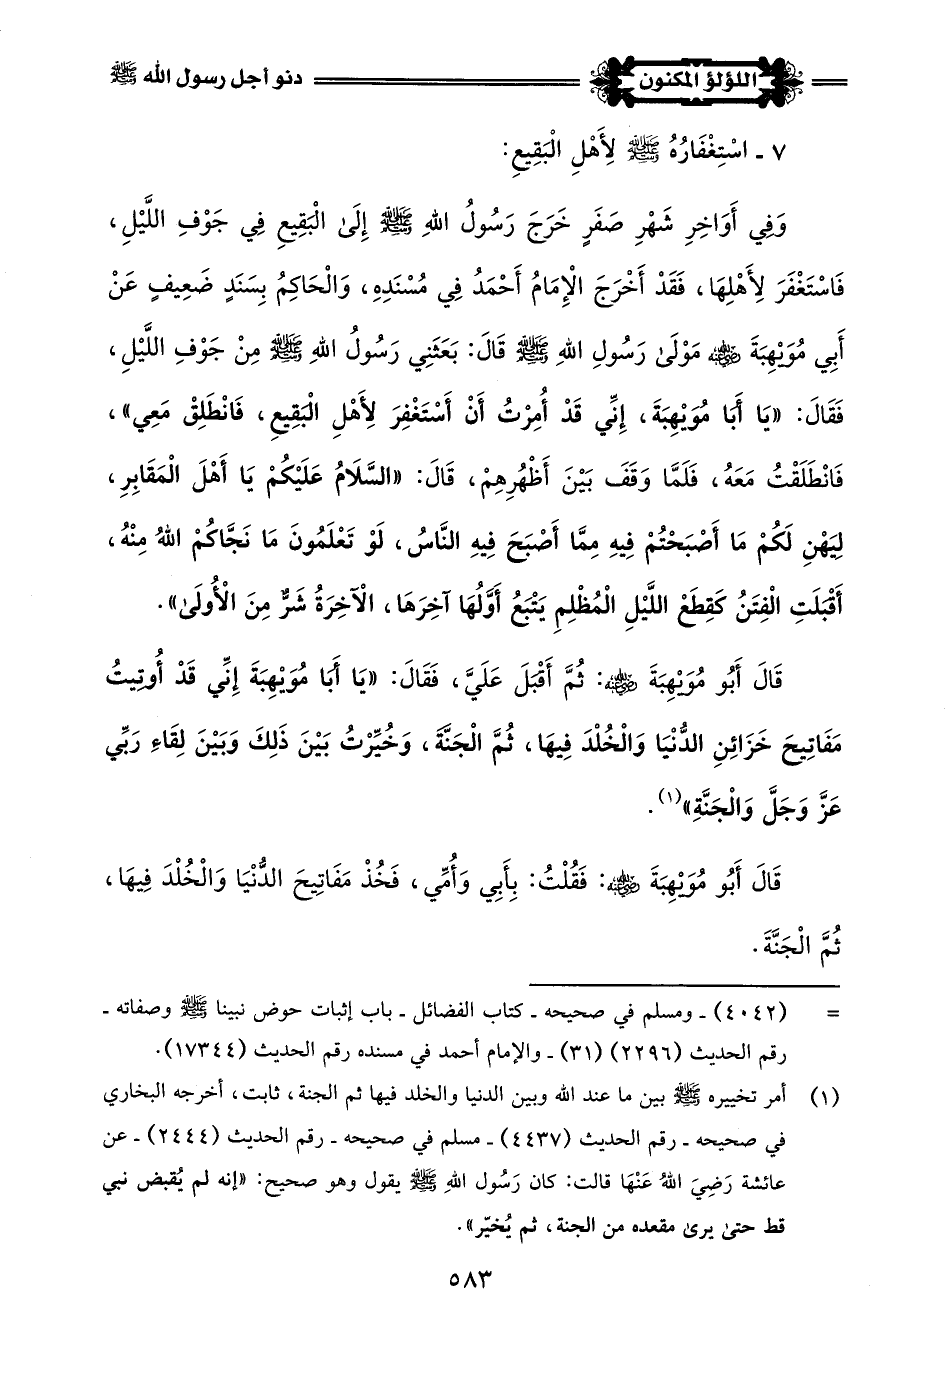 اللؤلؤ المكنون
دنو أجل رسول الله ﷺ
٧ - اسْتِغْفَارُهُ ﷺ لِأَهْلِ الْبَقِيعِ:
وَفِي أَوَاخِرِ شَهْرِ صَفَرٍ خَرَجَ رَسُولُ اللهِ ﷺ إِلَىٰ الْبَقِيعِ فِي جَوْفِ اللَّيْلِ،
فَاسْتَغْفَرَ لِأَهْلِهَا، فَقَدْ أَخْرَجَ الْإِمَامُ أَحْمَدُ فِي مُسْنَدِهِ، وَالْحَاكِمُ بِسَنَدٍ ضَعِيفٍ عَنْ
أَبِي مُوَيْهِبَةَ رضي الله عنه مَوْلَىٰ رَسُولِ اللهِ ﷺ قَالَ: بَعَثَنِي رَسُولُ اللهِ ﷺ مِنْ جَوْفِ اللَّيْلِ،
فَقَالَ: «يَا أَبَا مُوَيْهِبَةَ، إِنِّي قَدْ أُمِرْتُ أَنْ أَسْتَغْفِرَ لِأَهْلِ الْبَقِيعِ، فَانْطَلِقْ مَعِي»،
فَانْطَلَقْتُ مَعَهُ، فَلَمَّا وَقَفَ بَيْنَ أَظْهُرِهِمْ، قَالَ: «السَّلَامُ عَلَيْكُمْ يَا أَهْلَ الْمَقَابِرِ،
لِيَهْنِ لَكُمْ مَا أَصْبَحْتُمْ فِيهِ مِمَّا أَصْبَحَ فِيهِ النَّاسُ، لَوْ تَعْلَمُونَ مَا نَجَّاكُمْ اللهُ مِنْهُ،
أَقْبَلَتِ الْفِتَنُ كَقِطَعِ اللَّيْلِ الْمُظْلِمِ يَتْبَعُ أَوَّلُهَا آخِرَهَا، الْآخِرَةُ شَرٌّ مِنَ الْأُولَىٰ».
قَالَ أَبُو مُوَيْهِبَةَ رضي الله عنه: ثُمَّ أَقْبَلَ عَلَيَّ، فَقَالَ: «يَا أَبَا مُوَيْهِبَةَ إِنِّي قَدْ أُوتِيتُ
مَفَاتِيحَ خَزَائِنِ الدُّنْيَا وَالْخُلْدَ فِيهَا، ثُمَّ الْجَنَّةَ، وَخُيِّرْتُ بَيْنَ ذَلِكَ وَبَيْنَ لِقَاءِ رَبِّي
عَزَّ وَجَلَّ وَالْجَنَّةِ»(١).
قَالَ أَبُو مُوَيْهِبَةَ رضي الله عنه: فَقُلْتُ: بِأَبِي وَأُمِّي، فَخُذْ مَفَاتِيحَ الدُّنْيَا وَالْخُلْدَ فِيهَا،
ثُمَّ الْجَنَّةَ.
= (٤٠٤٢) - ومسلم في صحيحه - كتاب الفضائل - باب إثبات حوض نبينا ﷺ وصفاته -
رقم الحديث (٢٢٩٦) (٣١) - والإمام أحمد في مسنده رقم الحديث (١٧٣٤٤).
(١) أمر تخييره ﷺ بين ما عند الله وبين الدنيا والخلد فيها ثم الجنة، ثابت، أخرجه البخاري
في صحيحه - رقم الحديث (٤٤٣٧) - مسلم في صحيحه - رقم الحديث (٢٤٤٤) - عن
عائشة رَضِيَ اللهُ عَنْهَا قالت: كان رَسُول اللهِ ﷺ يقول وهو صحيح: «إنه لم يُقبض نبي
قط حتىٰ يرىٰ مقعده من الجنة، ثم يُخيّر».
٥٨٣